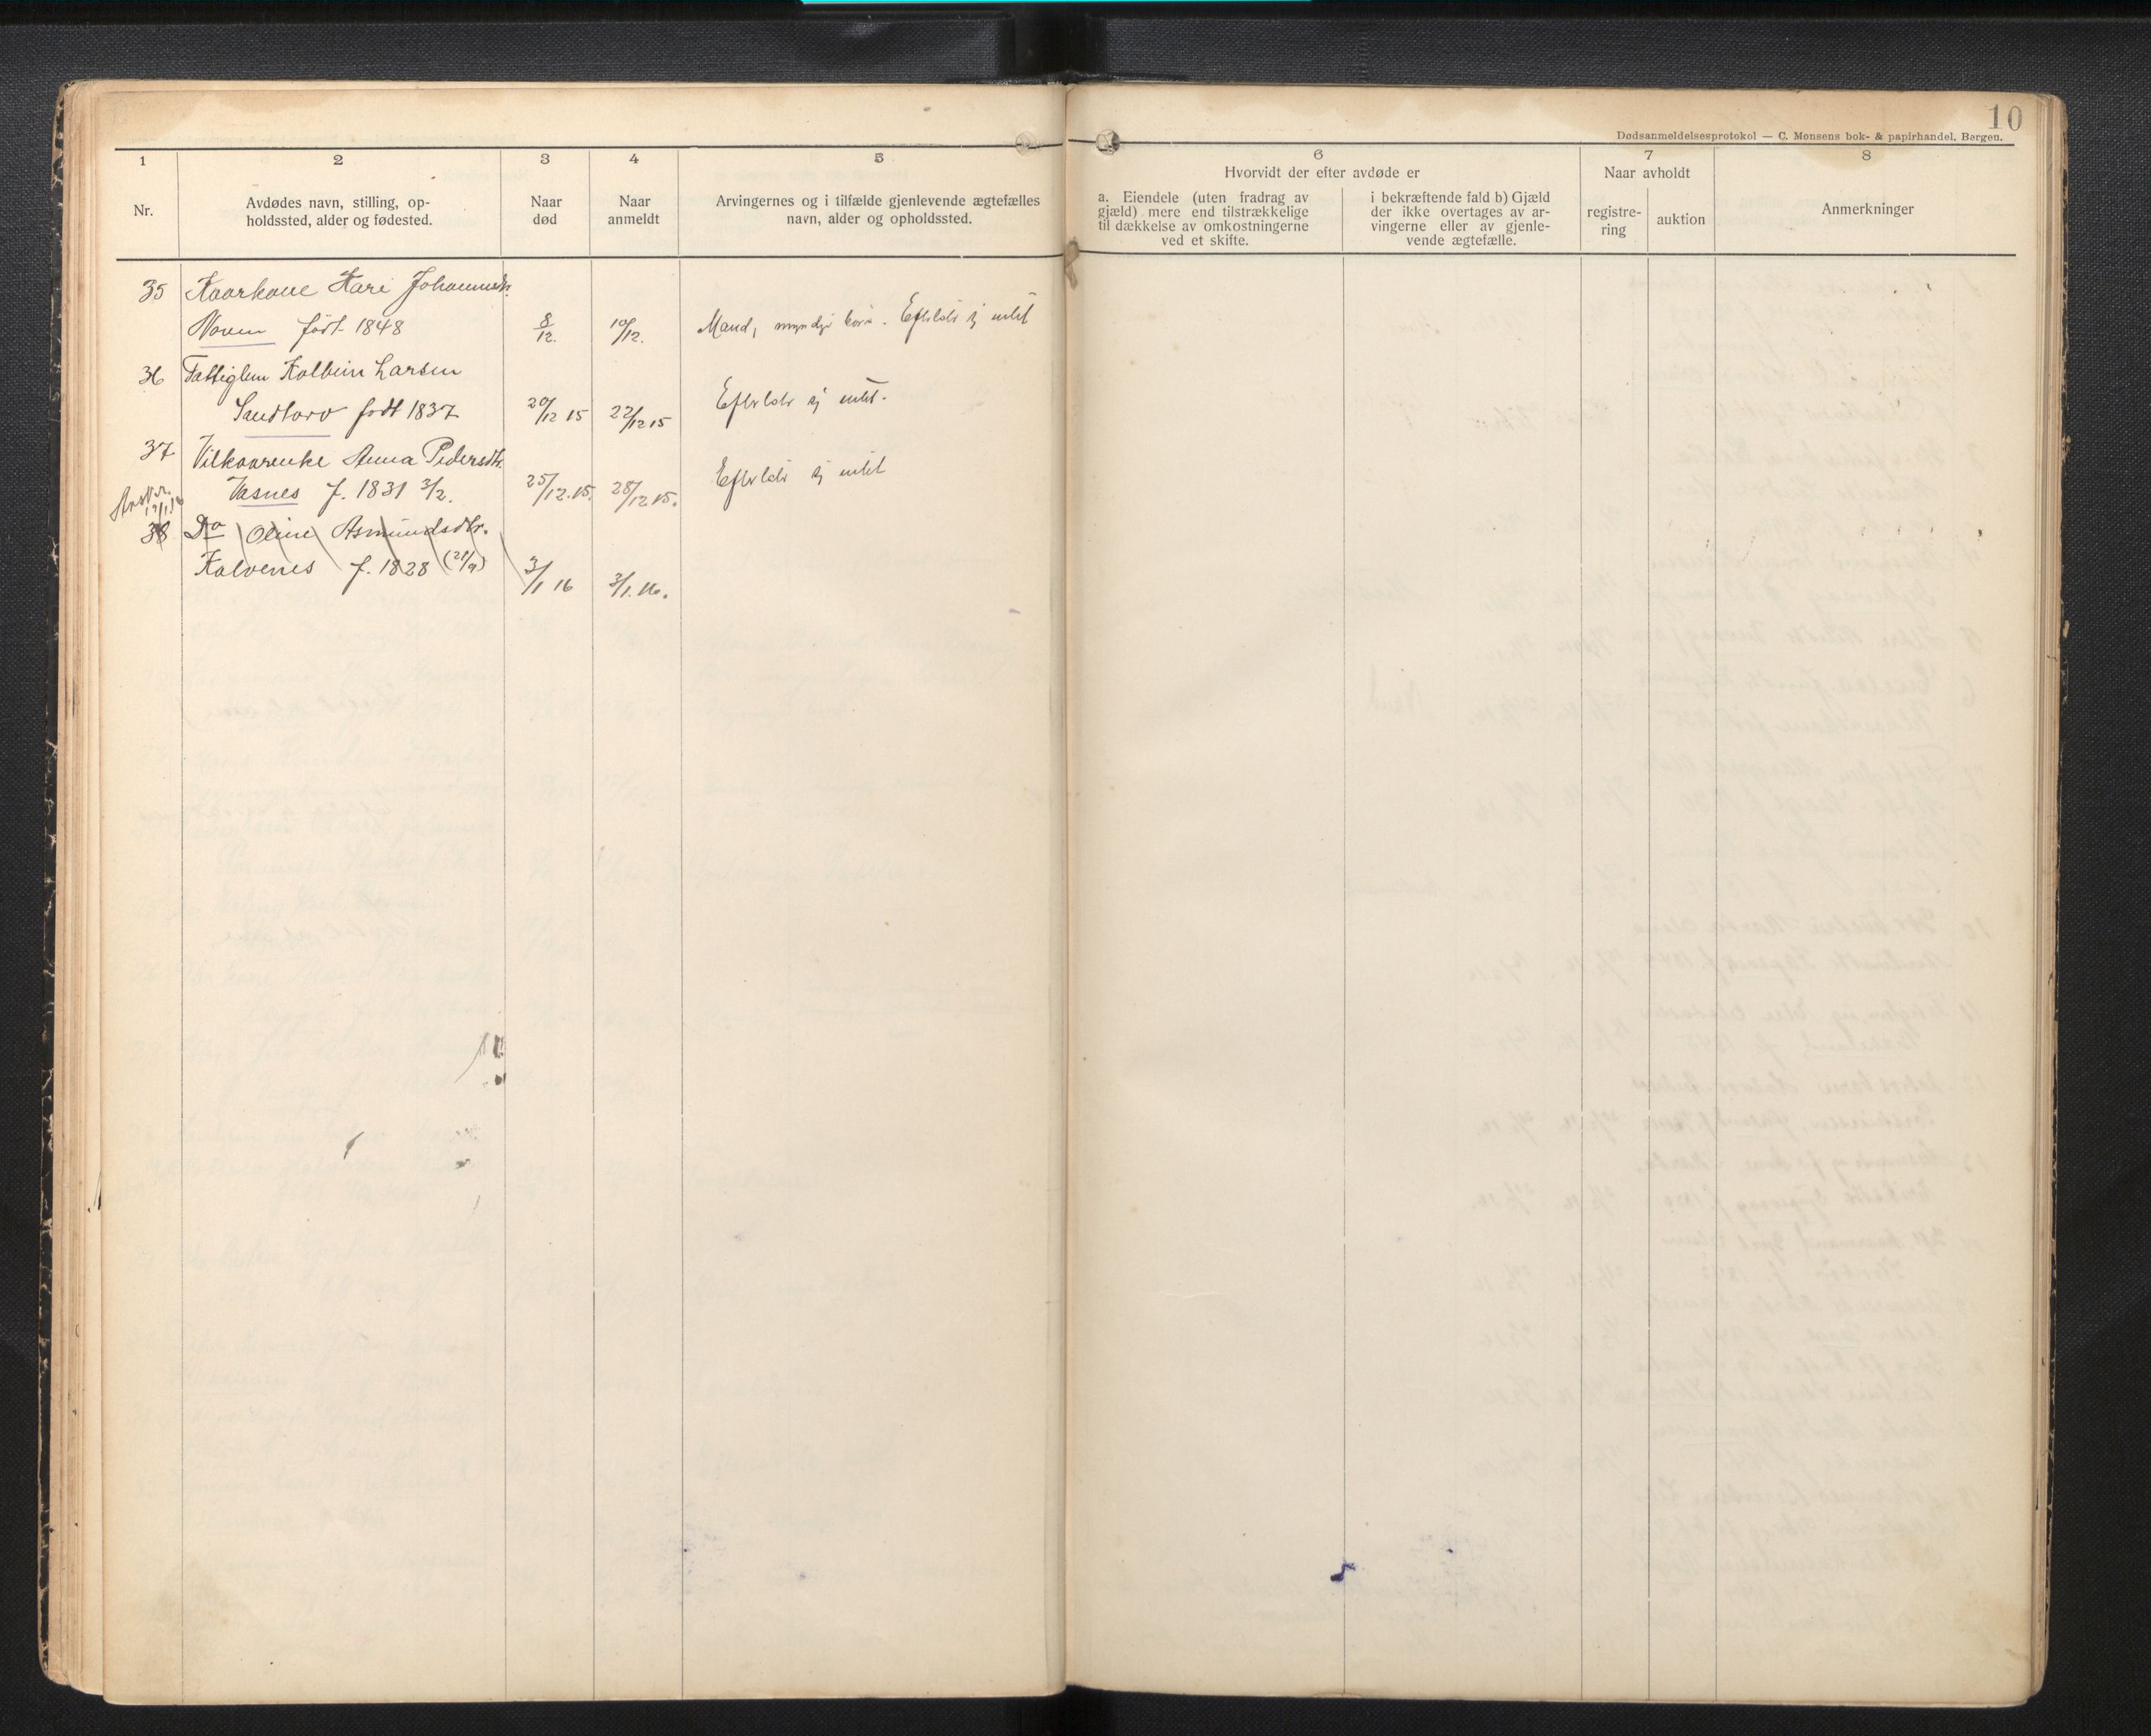 10
Dødsanmeldelsesprotokol — C. Monsens bok- & papirhandel, Bergen.
1 2 3 4 5 6 7 8
Nr.
Avdødes navn, stilling, op-
holdssted, alder og fødested.
Naar
død
Naar
anmeldt
Arvingernes og i tilfælde gjenlevende ægtefælles
navn, alder og opholdssted.
Hvorvidt der efter avdøde er
a. Eiendele (uten fradrag av
gjæld) mere end tilstrækkelige
til dækkelse av omkostningerne
ved et skifte.
i bekræftende fald b) Gjæld
der ikke overtages av ar-
vingerne eller av gjenle-
vende ægtefælle.
Naar avholdt
registre-
ring
auktion
Anmerkninger
35 Kaarkone Kari Johannesdtr.
født 1848 8/12. 10/12. Mand, myndige børn. Efterlater ej intet
36 Fattiglem Kolbein Larsen
Sandtorv født 1837 20/12 15 22/12 15 Efterlater ej intet.
37 Vilkaarenke Anna Pedersdtr.
Vasnes f. 1831 3/2. 25/12.15. 28/12 15. Efterlater ej intet
38 Do Oline Asmundsdtr.
Kalvenes f. 1828 3/1 16 3/1.16.